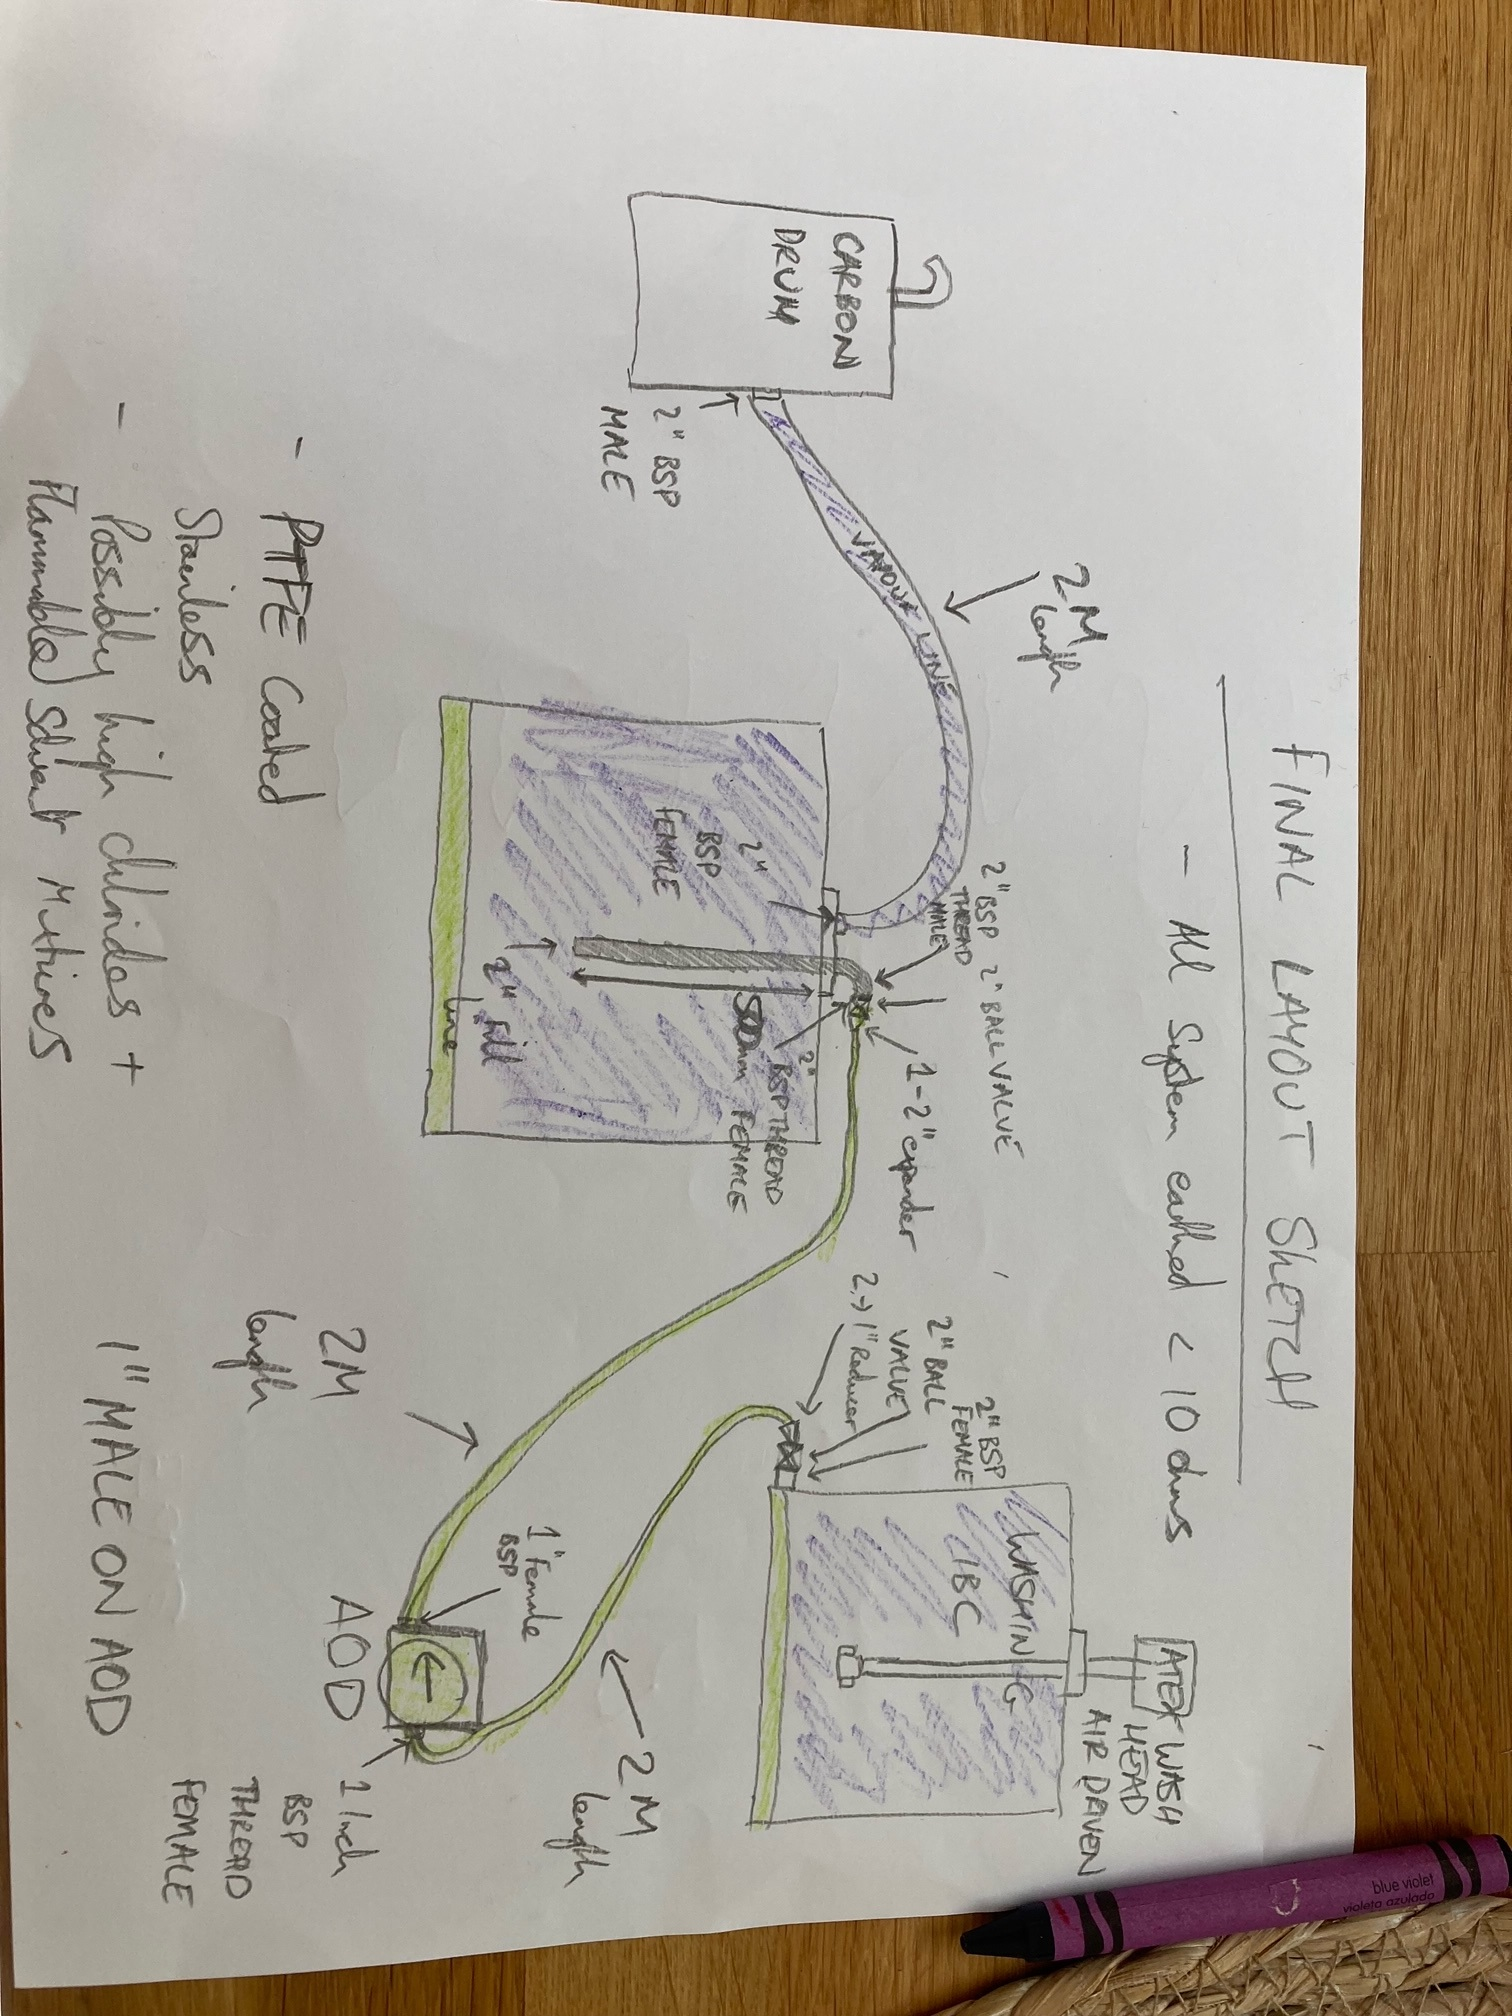 FINAL LAYOUT SKETCH
- All System earthed < 10 ohms
CARBON
DRUM
2" BSP
MALE
VAPOUR LINE
2M
length
2" BSP
THREAD
MALE
2" BALL VALVE
1-2" expander
2"
BSP
FEMALE
500mm
2"
BSP THREAD
FEMALE
2" Fill
Line
2" BSP
FEMALE
2" BALL
VALVE
2->1" Reducer
ATEX WASH
HEAD
AIR DRIVEN
WASHING
IBC
2M
length
1" Female
BSP
AOD
2M
length
1 Inch
BSP
THREAD
FEMALE
1" MALE ON AOD
- PTFE Coated
Stainless
- Possibly high chlorides +
Flammable Solvent Mixtures
blue violet
violeta azulado